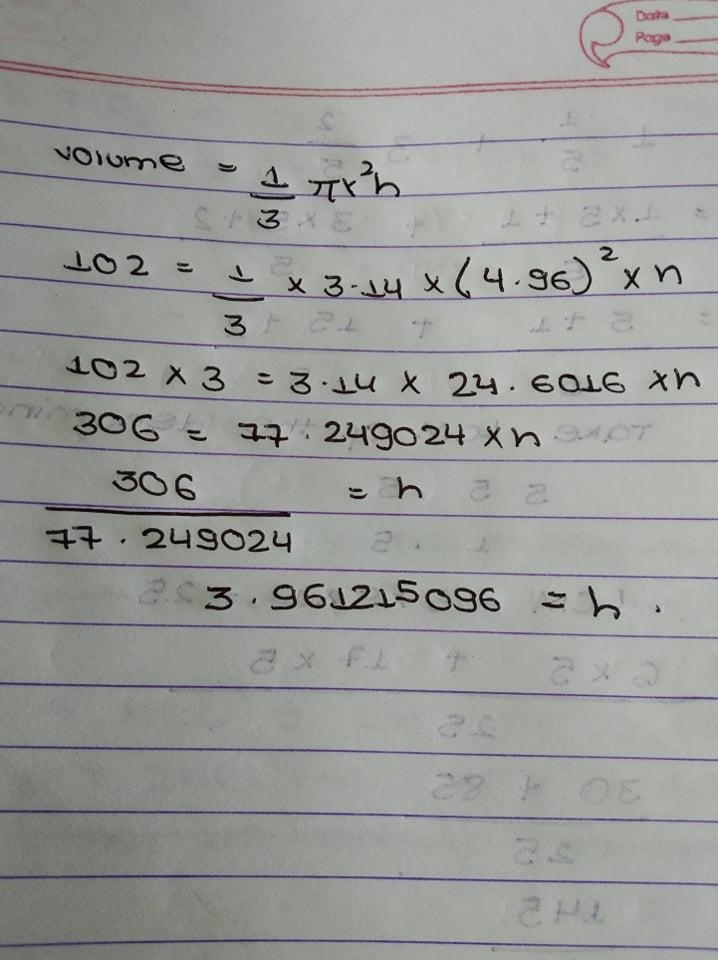 Date
Page
volume = 1/3 πr²h
102 = 1/3 × 3.14 × (4.96)² × h
102 × 3 = 3.14 × 24.6016 × h
306 = 77.249024 × h
306/77.249024 = h
3.961215096 = h.